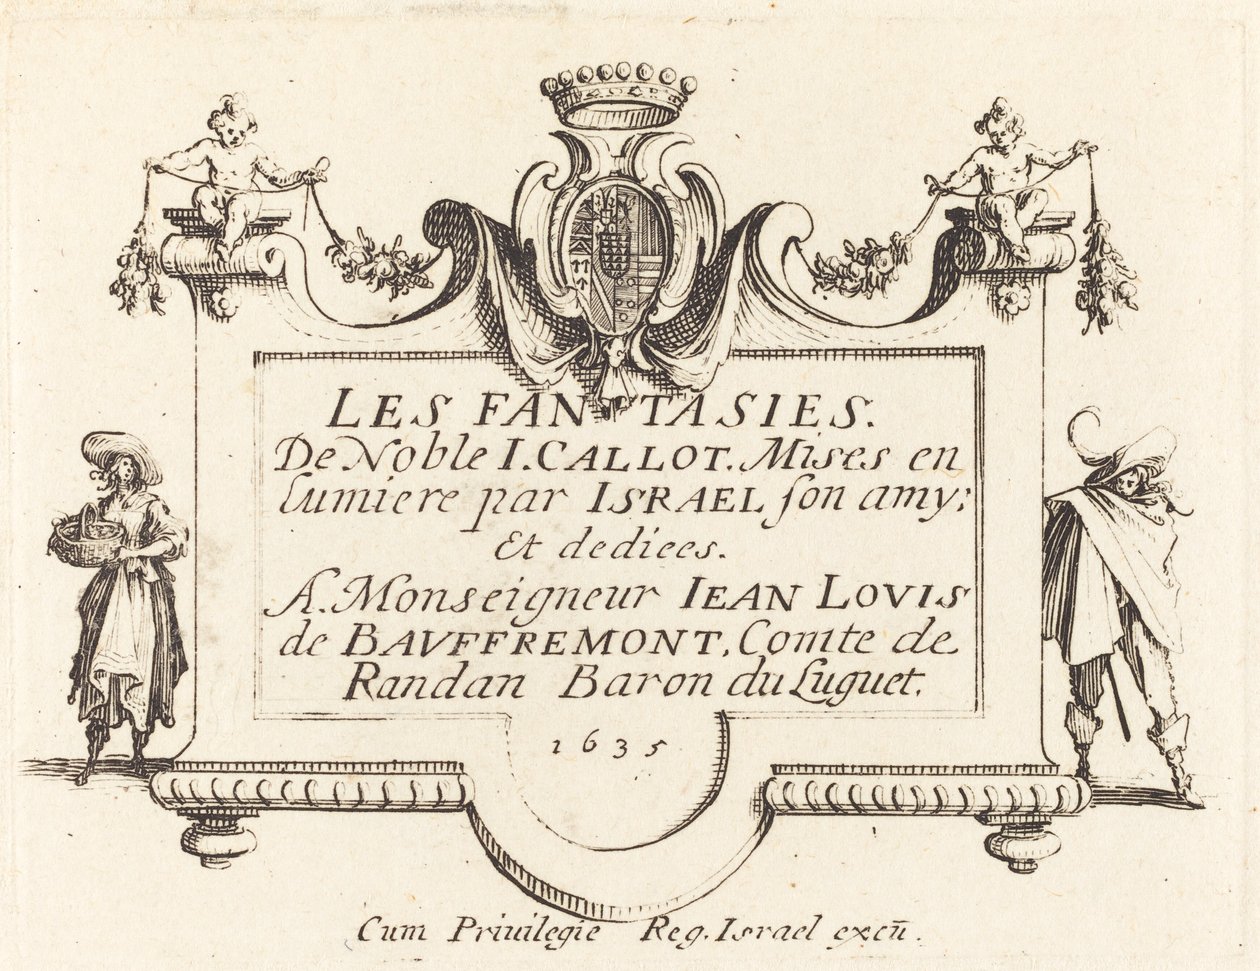 LES FANTASIES.
De Noble I. CALLOT. Mises en
lumiere par ISRAEL ſon amy;
Et dediees.
A. Monseigneur IEAN LOVIS
de BAVFFREMONT, Comte de
Randan Baron du Luguet.
1635
Cum Priuilegie Reg. Israel excū.